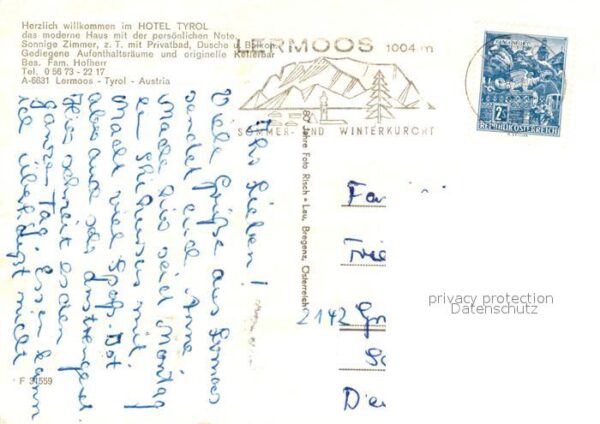 Herzlich willkommen im HOTEL TYROL
das moderne Haus mit der persönlichen Note.
Sonnige Zimmer, z. T. mit Privatbad, Dusche u. Balkon.
Gediegene Aufenthaltsräume und originelle Kellerbar
Bes. Fam. Hofherr
Tel. 0 56 73 - 22 17
A-6631 Lermoos - Tyrol - Austria
LERMOOS 1004 m
SOMMER- UND WINTERKURORT
2 S
REPUBLIK ÖSTERREICH
Ihr Lieben!
Viele Grüße aus Lermoos
sendet euch Anne
Mache hier seid Montag
ein Skikursus mit
Macht viel Spaß. Ist
aber auch sehr anstrengend.
Hier schneit es den
ganzen Tag. Essen kann
ich überhaupt nicht
80 Jahre Foto Risch-Lau, Bregenz, Österreich
Fa
2142 Gr
Die
privacy protection
Datenschutz
F 31559